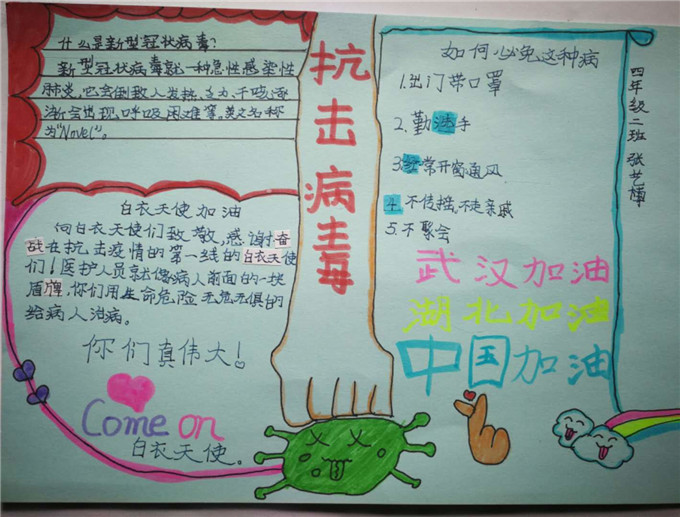 什么是新型冠状病毒?
新型冠状病毒就一种急性感染性
肺炎,它会倒致人发热、乏力、干咳、逐
渐会出现呼吸困难等。英文名称
为"Novel"。
白衣天使加油
向白衣天使们致敬,感谢奋
战在抗击疫情的第一线的白衣天使
们!医护人员就像病人前面的一块
盾牌,你们用生命危险无危无惧的
给病人治病。
你们真伟大!
Come on
白衣天使。
抗击病毒
如何必免这种病
1.出门带口罩
2.勤洗手
3.经常开窗通风
4.不传摇,不走亲戚
5.不聚会
武汉加油
湖北加油
中国加油
四年级二班 张艺